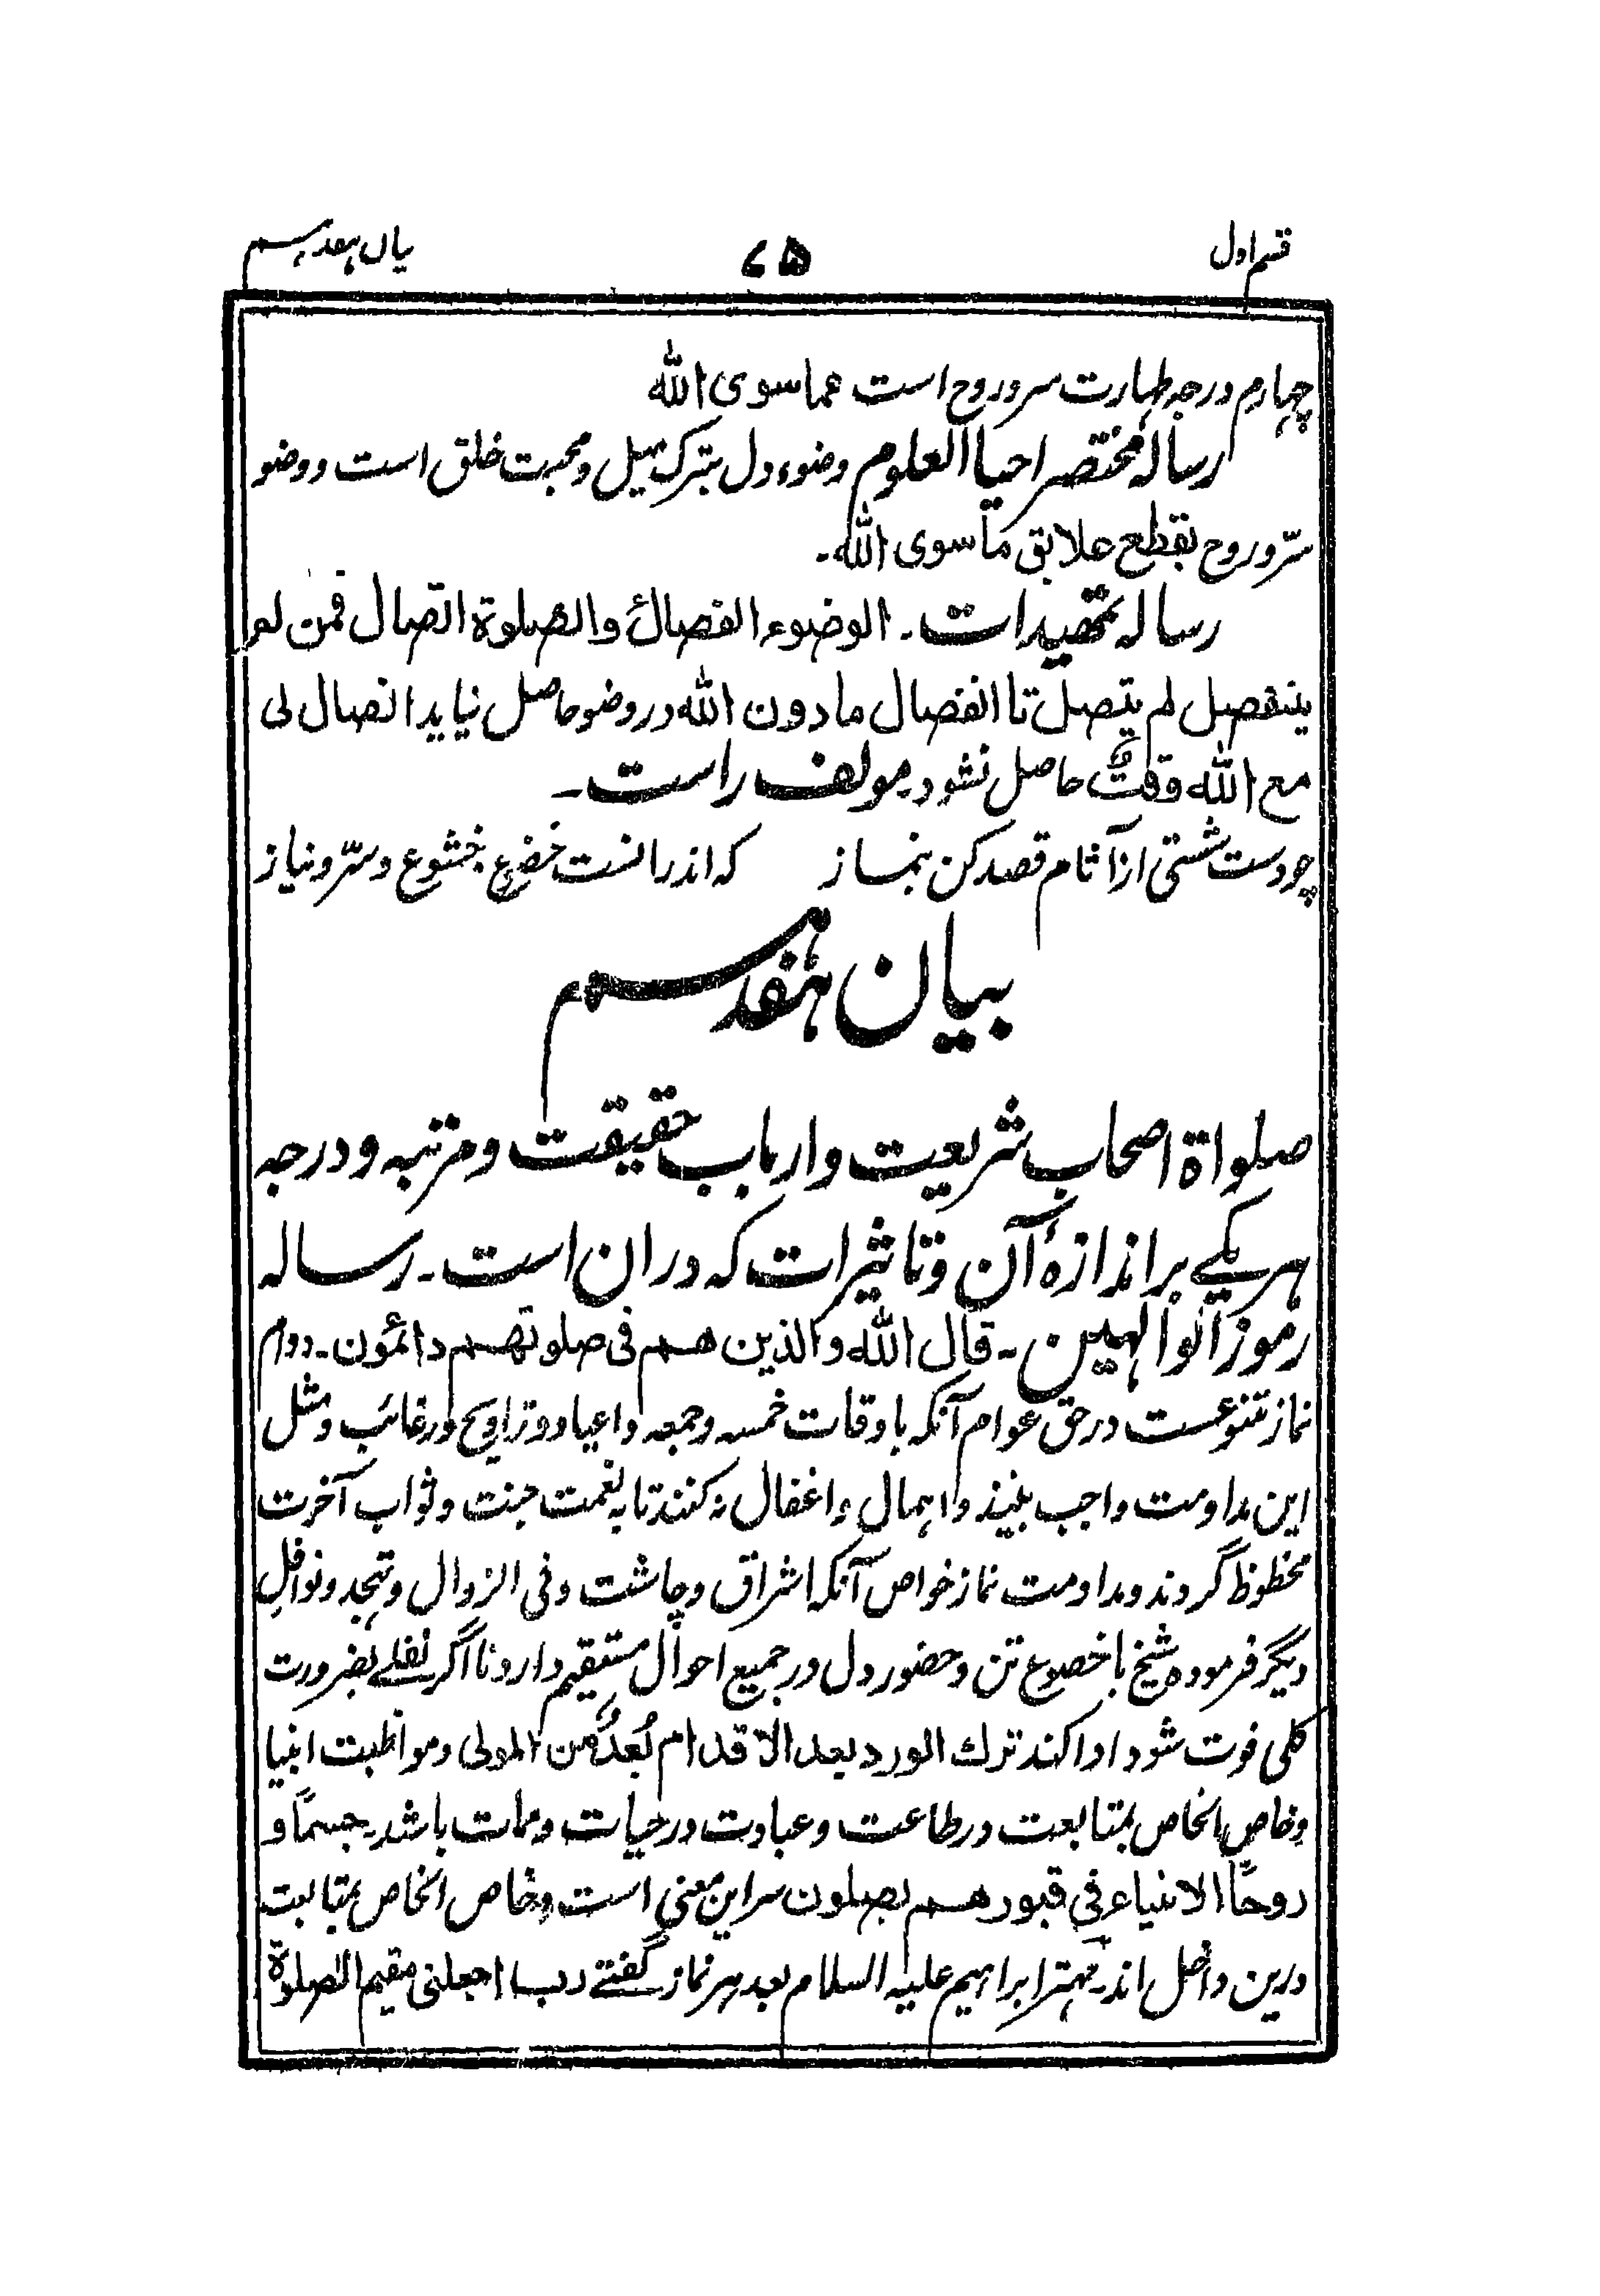 قسم اول
۷۵
بیان ہفدہم
چہارم درجہ طہارت سر و روح است عما سوی اللہ
رسالہ مختصر احیا العلوم وضوء دل بترک میل و محبت خلق است و وضو
سرّ و روح بقطع علایق ما سوی اللہ۔
رسالہ تمھیدات۔ الوضوء انفصال والصلوۃ اتصال فمن لم
ینفصل لم یتصل تا انفصال ما دون اللہ در وضو حاصل نیاید اتصال لی
مع اللہ وقت حاصل نشود۔ مولف راست۔
چو دست شستی از آثام قصد کن بنماز که اندرانست خضوع خشوع و سرّ و نیاز
بیان ہفدہم
صلواۃ اصحاب شریعت و ارباب حقیقت و مرتبہ و درجہ
ہر یکے بر اندازۂ آن و تاثیرات کہ دران است۔ رسالہ
رموز الوالہین۔ قال اللہ والذین ھم فی صلوتھم دائمون۔ دوام
نماز متنوعست در حق عوام آنکہ باوقات خمسہ و جمعہ و اعیاد و تراویح و رغائب و مثل
این مداومت واجب بینند و اہمال و اغفال نہ کنند تا بہ نعمت جنت و ثواب آخرت
محظوظ گردند و مداومت نماز خواص آنکہ اشراق و چاشت و فی الزوال و تہجد و نوافل
دیگر فرمودہ شیخ با خضوع تن و حضور دل در جمیع احوال مستقیم دارد تا اگر نفلے بضرورت
کلی فوت شود ادا کند ترک الورد بعد الاقدام بُعدٌ من المولی و مواظبت انبیا
و خاص الخاص بمتابعت در طاعت و عبادت در حیات و ممات باشد۔ جسمًا و
روحًا الانبیاء فی قبورھم یصلون سر این معنی است و خاص الخاص بمتابعت
درین داخل اند۔ مہتر ابراہیم علیہ السلام بعد ہر نماز گفتے رب اجعلنی مقیم الصلوۃ